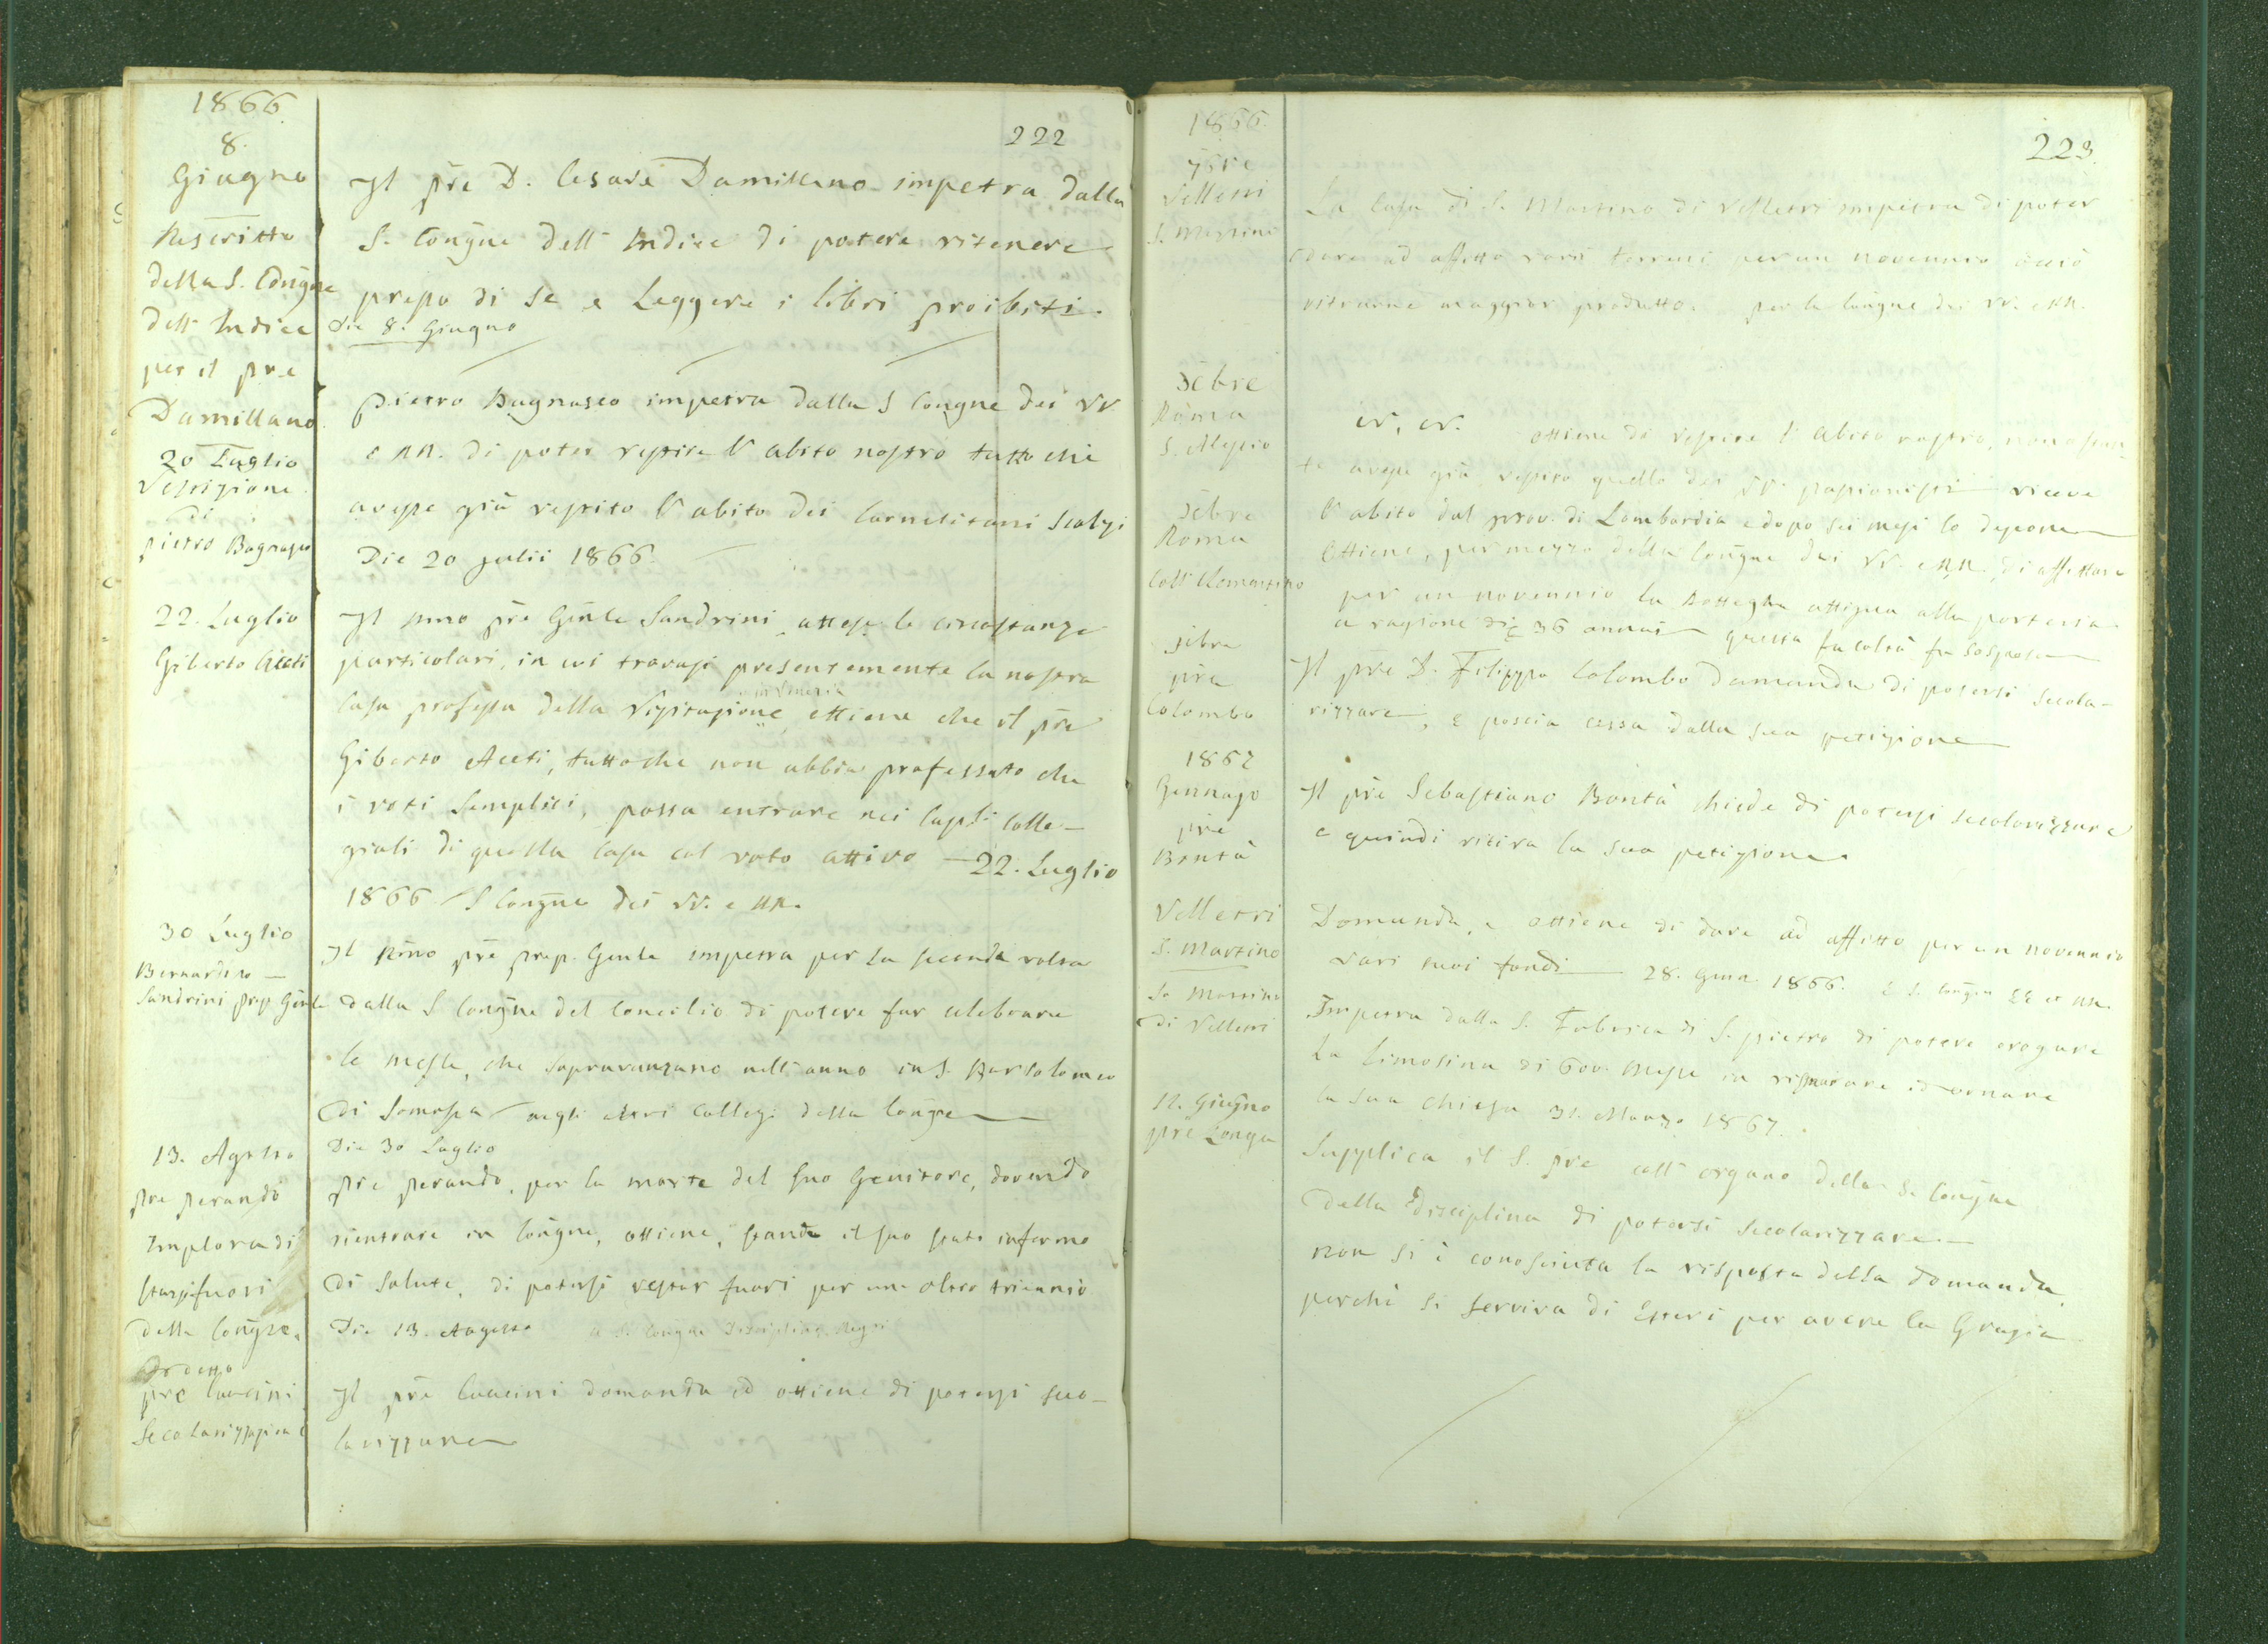 1866.
8.
Giugno
Rescritto
della S. Congne
dell' Indice
per il pre
Damillano
20 Luglio
Vestizione
di
pietro Bagnasco
22. Luglio
Giberto Aceti
30 Luglio
Bernardino
Sandrini prep. Genle
13. Agosto
pre perando
Implora di
starsi fuori
della Congne.
pre Cuccini
Secolarizzazione
222
Il pre D. Cesare Damillano impetra dalla
S. Congne dell' Indice di potere ritenere
presso di se e Leggere i libri proibiti.
Die 8. Giugno
Pietro Bagnasco impetra dalla S Congne dei VV
e RR. di poter vestire l'abito nostro tutto che
avesse già vestito l'abito dei Carmelitani Scalzi
Die 20 julii 1866.
Il pre Genle Sandrini attese le circostanze
particolari, in cui trovasi presentemente la nostra
Casa professa della Visitazione in Venezia ottiene che il pre
Giberto Aceti, tuttoche non abbia professato che
i voti Semplici, possa entrare nei Caplti Colle-
giali di quella Casa col voto attivo — 22. Luglio
1866 S Congne dei VV. e RR.
Il Rmo pre prep. Genle impetra per la seconda volta
dalla S Congne del Concilio di potere far celebrare
le messe, che sopravanzano nell'anno in S. Bartolomeo
di Somasca negli altri Collegi della Congne
Die 30 Luglio
pre perando, per la morte del suo Genitore, dovendo
rientrare in Congne, ottiene, stande il suo stato infermo
di salute, di potersi restar fuori per un altro triennio
Die 13. Augusto a S. Congne Discipline Regri
Il pre Cuccini domanda ed ottiene di potersi seco-
larizzare
1866.
7bre
Velletri
S. Martino
Xbre
Roma
S. Alessio
Xbre
Roma
Coll. Clementino
Xbre
pre
Colombo
1867
Gennajo
pre
Bontà
Velletri
S. Martino
S. Martino
di Velletri
12. Giugno
pre Longa
223.
La Casa di S. Martino di Velletri impetra di poter
dare ad affitto varii terreni per un novennio acciò
ritrarne maggior prodotto. per la Congne dei VV. e RR.
ottiene di vestire l'abito nostro, non ostan-
te avesse già vestito quello dei PP. passionisti riceve
l'abito dal prov. di Lombardia e dopo sei mesi lo depone
Ottiene, per mezzo della Congne dei VV. e RR. di affittare
per un novennio la Bottegha attigua alla porteria
a ragione di 36 annui questa facoltà fu sospesa
Il pre D. Filippo Colombo domanda di potersi secola-
rizzare, e poscia cessa dalla sua petizione
Il pre Sebastiano Bontà chiede di potersi secolarizzare
e quindi ritira la sua petizione.
Domanda, e ottiene di dare ad affitto per un novennio
vari suoi fondi 28. Genn. 1866. S. Congne EE et RR.
Impetra dalla S. Fabrica di S. pietro di potere erogare
la limosina di 600. Messe in ristorare ed ornare
la sua Chiesa 31. Marzo 1867.
Supplica il S. pre coll' organo della S. Congne
della Disciplina di potersi secolarizzare
non si è conosciuta la risposta della domanda,
perchè si serviva di Esteri per avere la Grazia